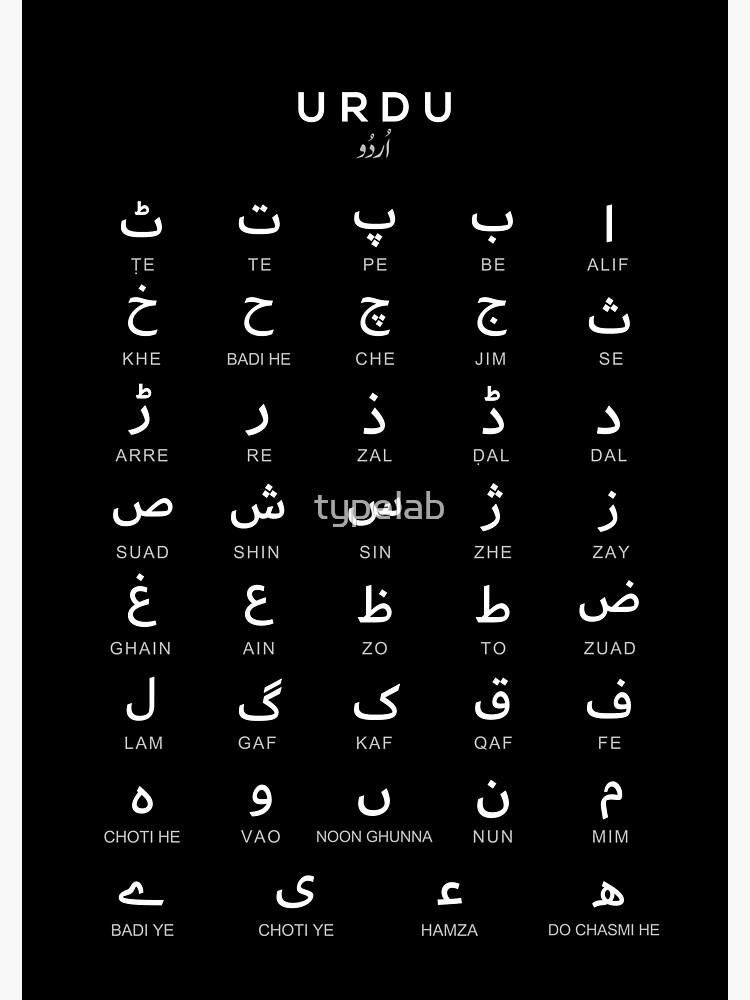 URDU
اُردُو
ا ب پ ت ٹ
ALIF BE PE TE ṬE
ث ج چ ح خ
SE JIM CHE BADI HE KHE
د ڈ ذ ر ڑ
DAL ḌAL ZAL RE ARRE
ز ژ س ش ص
typelab
ZAY ZHE SIN SHIN SUAD
ض ط ظ ع غ
ZUAD TO ZO AIN GHAIN
ف ق ک گ ل
FE QAF KAF GAF LAM
م ن ں و ہ
MIM NUN NOON GHUNNA VAO CHOTI HE
ھ ء ی ے
DO CHASMI HE HAMZA CHOTI YE BADI YE